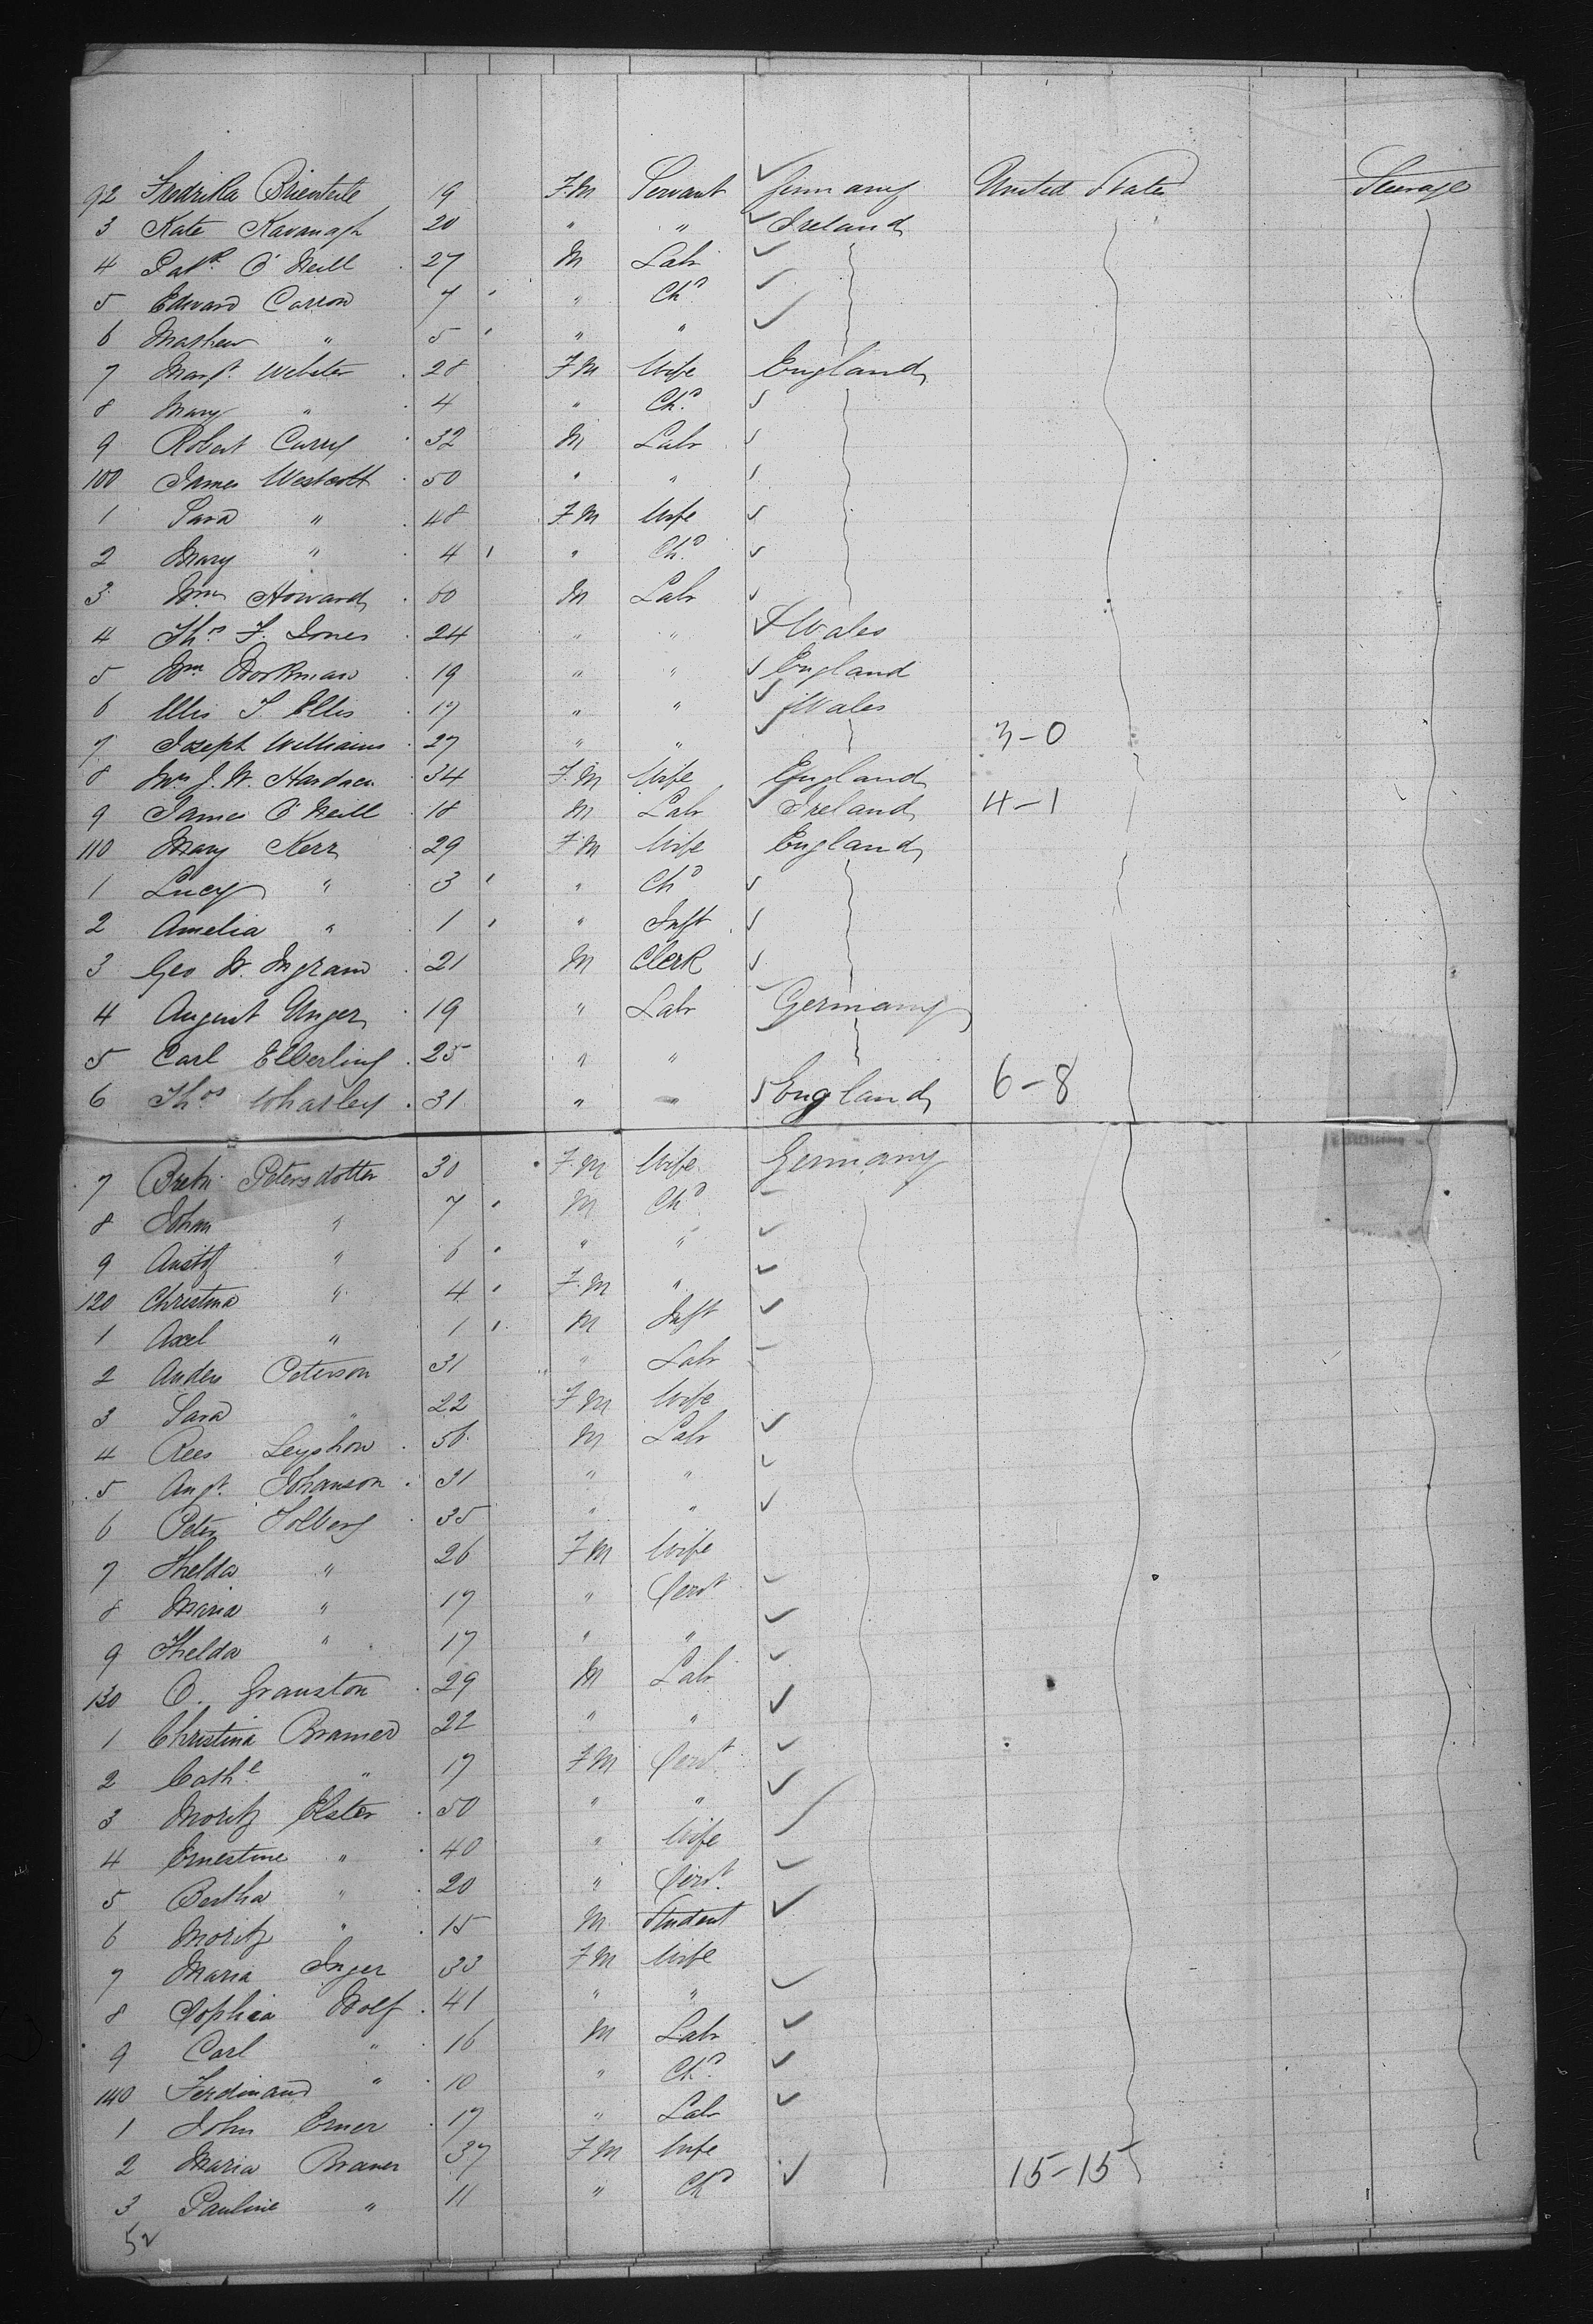 92 Fredrika 19 F.M Servant Germany United States Steerage
3 Kate Kavanagh 20 " " Ireland
4 Patk O'Neill 27 M Labr
5 Edward Carson 7 " Chd
6 Mathew " 5 " "
7 Margt Webster 28 F.M Wife England
8 Mary " 4 " Chd
9 Robert Curry 32 M Labr
100 James Westcott 50 " "
1 Sara " 48 F.M Wife
2 Mary " 4 " Chd
3 Wm Howard 60 M Labr
4 Thos F. Jones 24 " " Wales
5 Wm Workman 19 " " England
6 Ellis T. Ellis 17 " " Wales
7 Joseph Williams 27 " " 3-0
8 Mrs J. W. 34 F.M Wife England
9 James O'Neill 18 M Labr Ireland 4-1
110 Mary Kerr 29 F.M Wife England
1 Lucy " 3 " Chd
2 Amelia " 1 " Inft
3 Geo W. Ingram 21 M Clerk
4 August Unger 19 " Labr Germany
5 Carl Elberling 25 " "
6 Thos Whatley 31 " " England 6-8
7 Petersdotter 30 F.M Wife Germany
8 John " 7 M Chd
9 " 6 " "
120 Christina " 4 F.M "
1 Axel " 1 M Inft
2 Anders Peterson 31 " Labr
3 Sara " 22 F.M Wife
4 Rees Leyshon 56 M Labr
5 Augt Johanson 31 " "
6 Peter Solberg 35 " "
7 Thelda " 26 F.M Wife
8 Maria " 17 " Servt
9 Thelda " 17 " "
130 O. Granston 29 M Labr
1 Christina Bramer 22 " "
2 Cathe " 17 F.M Servt
3 Moritz Elster 50 " "
4 Ernestine " 40 " Wife
5 Bertha " 20 " Servt
6 Moritz " 15 M Student
7 Maria Inger 33 F.M Wife
8 Sophia Wolf 41 " "
9 Carl " 16 M Labr
140 Ferdinand " 10 " Chd
1 John Erner 17 " Labr
2 Maria Braner 37 F.M Wife
3 Pauline " 11 " Chd 15-15
52